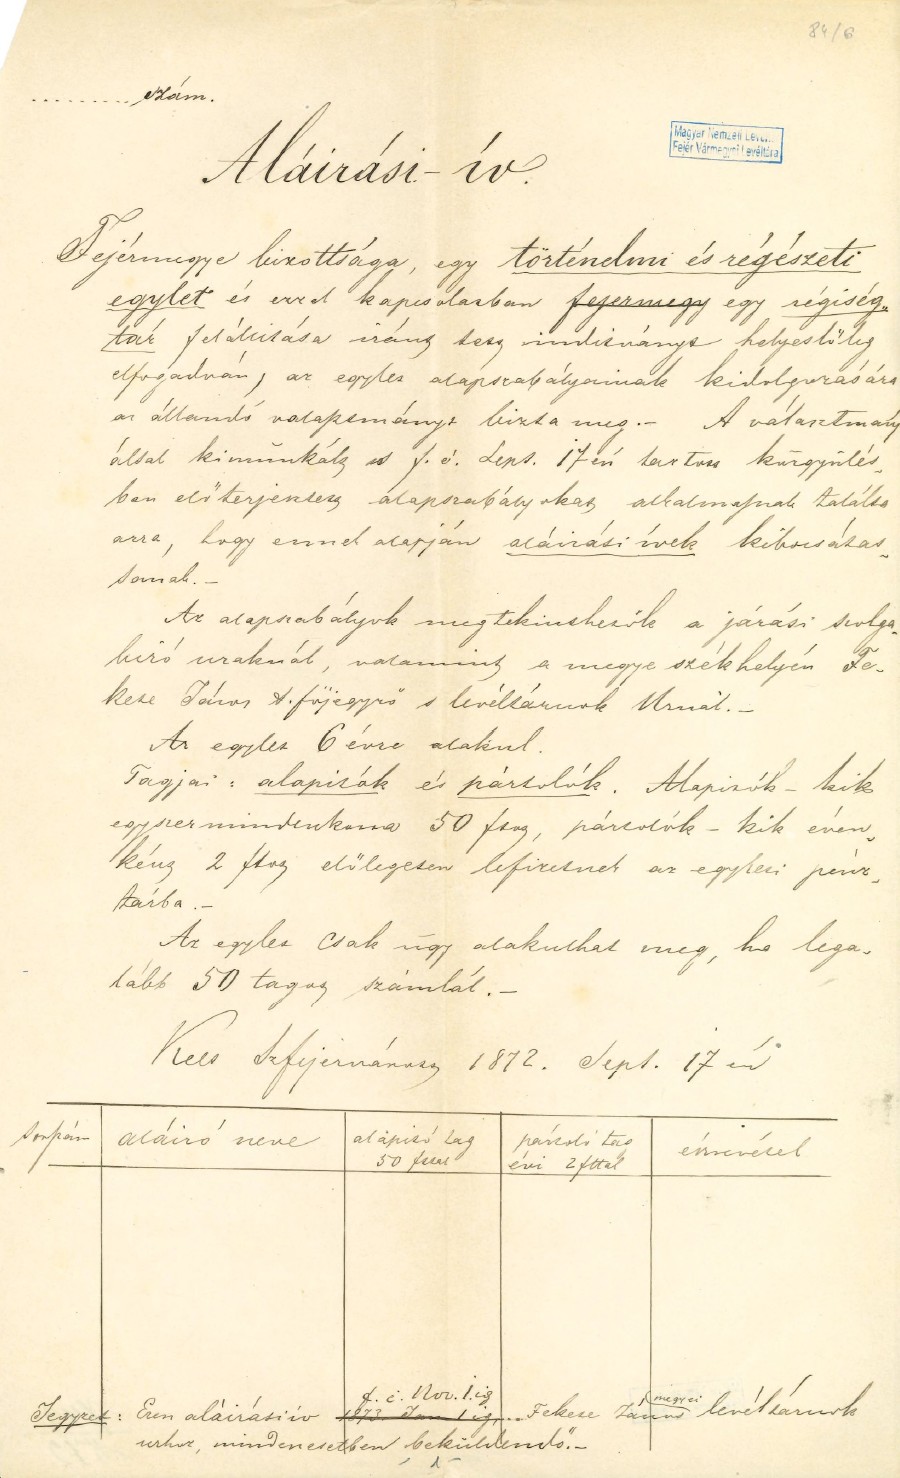 84/6
......... szám.
Magyar Nemzeti Levél...
Fejér Vármegyei Levéltára
Aláirási-ív.
Fejérmegye bizottsága, egy történelmi és régészeti
egylet és ezzel kapcsolatban fejermegy egy régiség-
tár felállitása iránt tett inditványt helyeslőleg
elfogadván, az egylet alapszabályainak kidolgozására
az állandó választmányt bizta meg.- A választmány
által kimünkált s f. é. Sept. 17én tartott közgyülés-
ben előterjesztett alapszabályokat alkalmasnak találta
arra, hogy ennek alapján aláirási ívek kibocsátas-
sanak.-
Az alapszabályok megtekinthetők a járási szolga-
biró uraknál, valamint a megye székhelyén Fe-
kete János t. főjegyző s levéltárnok Urnál.-
Az egylet 6 évre alakul.
Tagjai: alapitók és pártolók. Alapitók - kik
egyszermindenkorra 50 ftot, pártolók - kik éven-
ként 2 ftot előlegesen lefizetnek az egyleti pénz-
tárba.-
Az egylet csak úgy alakulhat meg, ha lega-
lább 50 tagot számlál.-
Kelt Szfejérvárott 1872. Sept. 17 én
sorszám
aláiró neve
alapitó tag
50 fttal
pártoló tag
évi 2 fttal
észrevétel
f. é. Nov. 1. ig
megyei
Jegyzet: Ezen aláirási ív 1873 Jan 1 ig Fekete János levéltárnok
urhoz, mindenesetben beküldendő.-